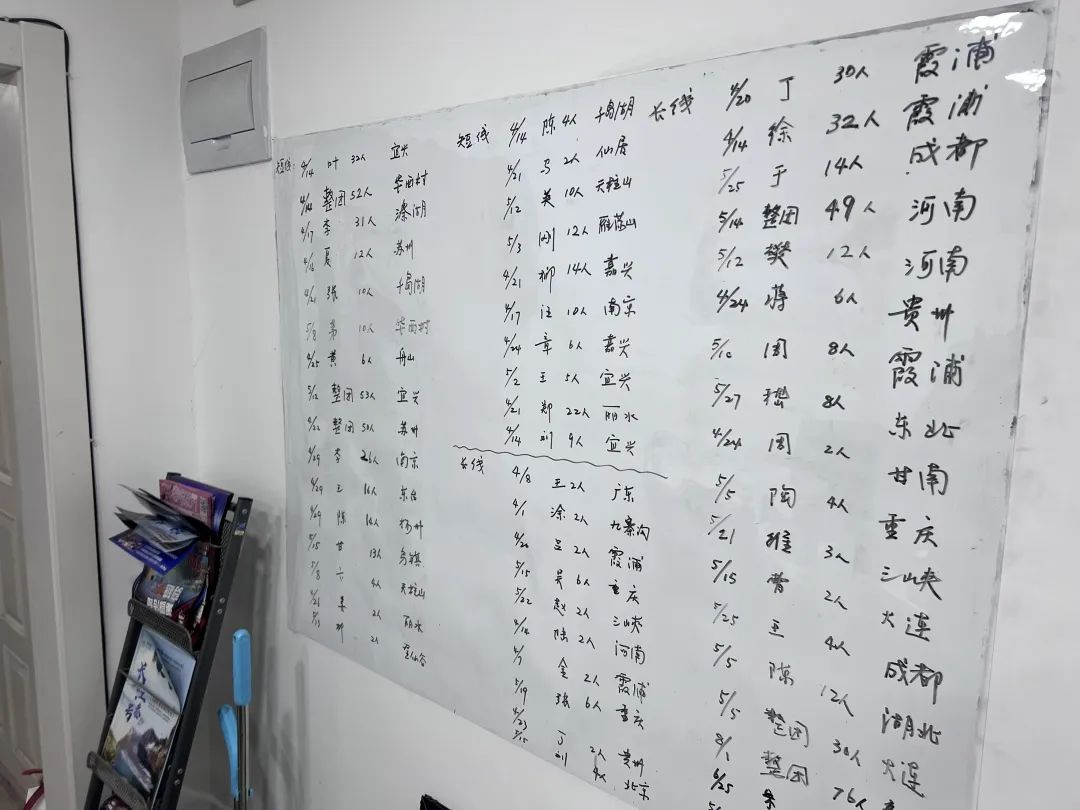 短线: 4/14 叶 32人 宜兴
4/14 整团 52人 华西村
4/17 李 31人 溱湖
夏 12人 苏州
4/21 张 10人 千岛湖
5/8 10人 华西村
4/25 黄 6人 舟山
5/12 整团 53人 宜兴
4/22 整团 50人 苏州
4/29 李 26人 南京
4/29 王 16人 东台
4/29 陈 16人
5/15 甘 13人 乌镇
5/8 六 4人 天柱山
2人 丽水
柳 2人
短线 4/14 陈 4人 千岛湖
4/21 马 2人 仙居
5/12 英 10人 天柱山
5/3 刚 12人 雁荡山
4/21 柳 14人 嘉兴
4/17 汪 10人 南京
4/24 章 6人 嘉兴
5/2 王 5人 宜兴
4/21 郑 22人 丽水
4/14 刘 9人 宜兴
长线 4/8 王 2人 广东
4/1 涂 2人 九寨沟
4/20 吕 2人 霞浦
5/15 吴 6人 重庆
5/22 赵 2人 三峡
4/14 陆 2人 河南
4/7 金 2人 霞浦
5/19 张 6人 重庆
4/23 丁 2人 贵州
5/15 刘 4人 北京
长线 4/20 丁 30人 霞浦
4/14 徐 32人 霞浦
5/25 于 14人 成都
5/14 整团 49人 河南
5/12 樊 12人 河南
4/24 蒋 6人 贵州
5/10 周 8人 霞浦
5/27 8人 东北
4/24 周 2人 甘南
5/5 陶 4人 重庆
5/21 3人 三峡
5/15 曾 2人 大连
5/25 王 4人 成都
5/5 陈 12人 湖北
5/5 整团 30人 大连
8/1 整团 76人
6/25
长江